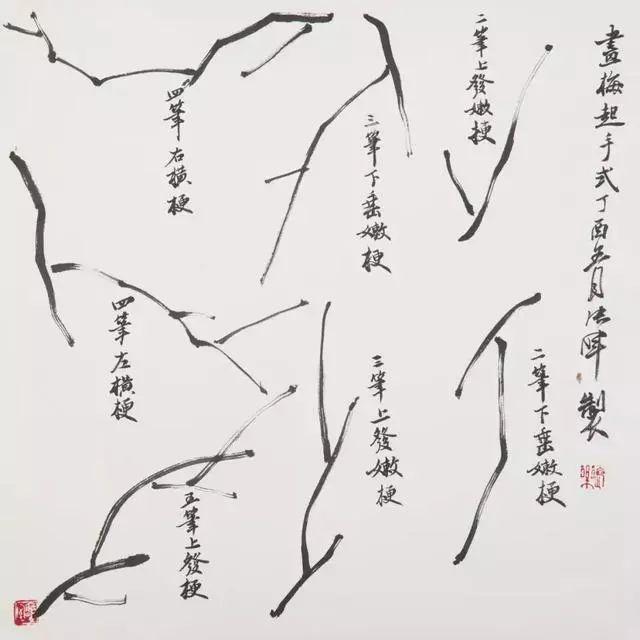 畫梅起手式丁酉年五月法暉製
二筆上發嫩梗
三筆下垂嫩梗
四筆右横梗
二筆下垂嫩梗
三筆上發嫩梗
四筆左横梗
五筆上發梗